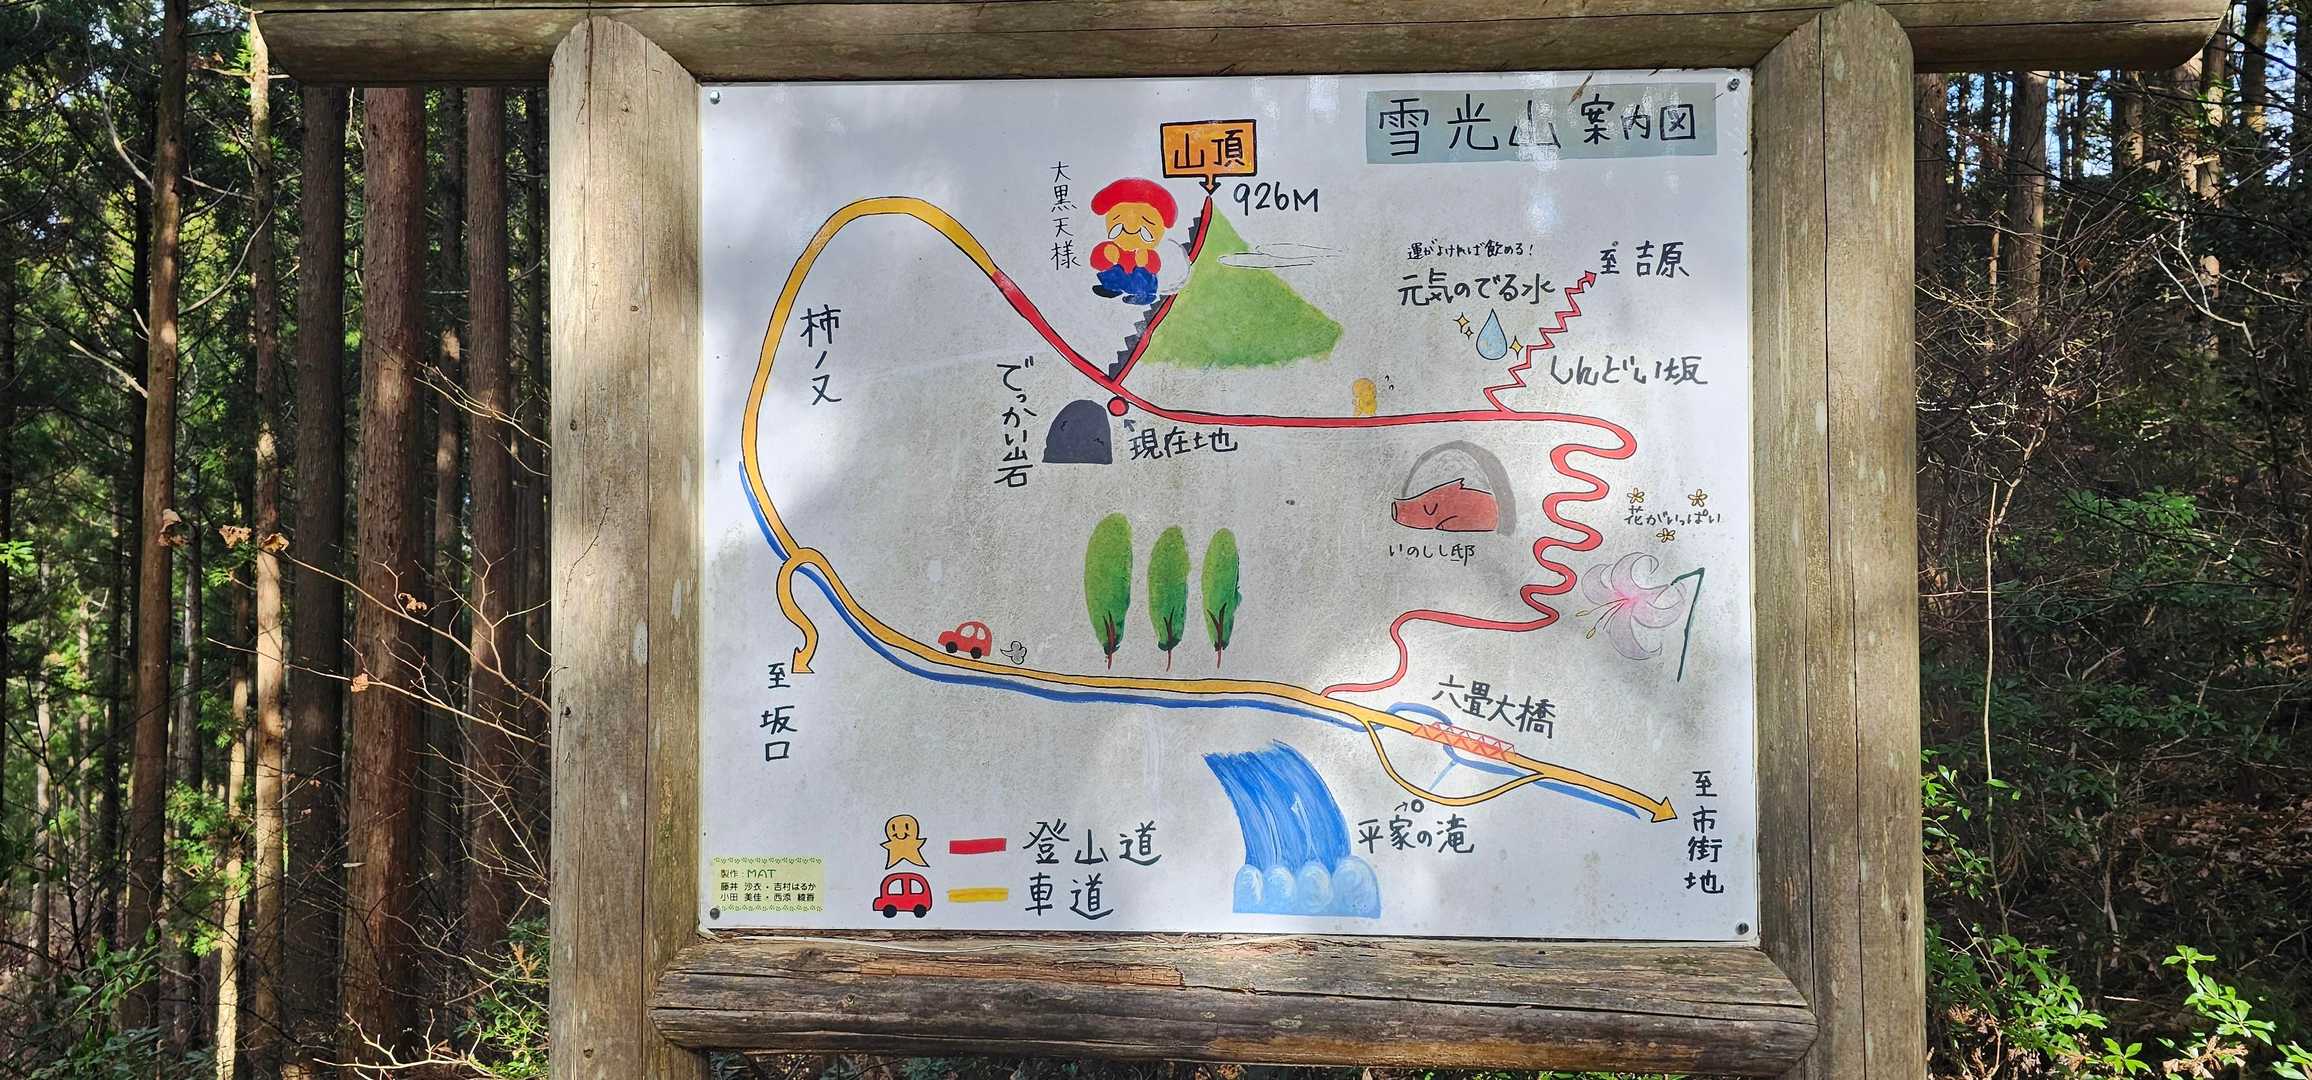 雪光山案内図
山頂
926M
大黒天様
運がよければ飲める!
元気のでる水
至吉原
しんどい坂
柿ノ又
でっかい岩
現在地
いのしし邸
花がいっぱい
六畳大橋
至坂口
至市街地
平家の滝
登山道
車道
製作:MAT
藤井 沙衣・吉村はるか
小田 美佳・西添 綾香